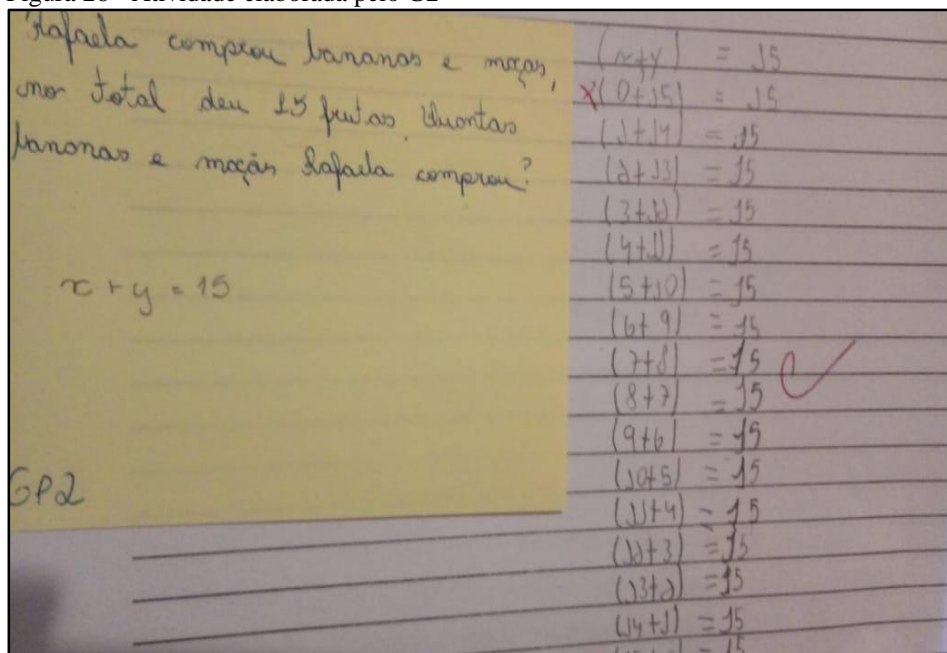 Rafaela comprou bananas e maças,
no total deu 15 frutas. Quantas
bananas e maçãs Rafaela comprou?
x + y = 15
GP2
(x+y) = 15
x(0+15) = 15
(1+14) = 15
(2+13) = 15
(3+12) = 15
(4+11) = 15
(5+10) = 15
(6+9) = 15
(7+8) = 15
(8+7) = 15
(9+6) = 15
(10+5) = 15
(11+4) = 15
(12+3) = 15
(13+2) = 15
(14+1) = 15